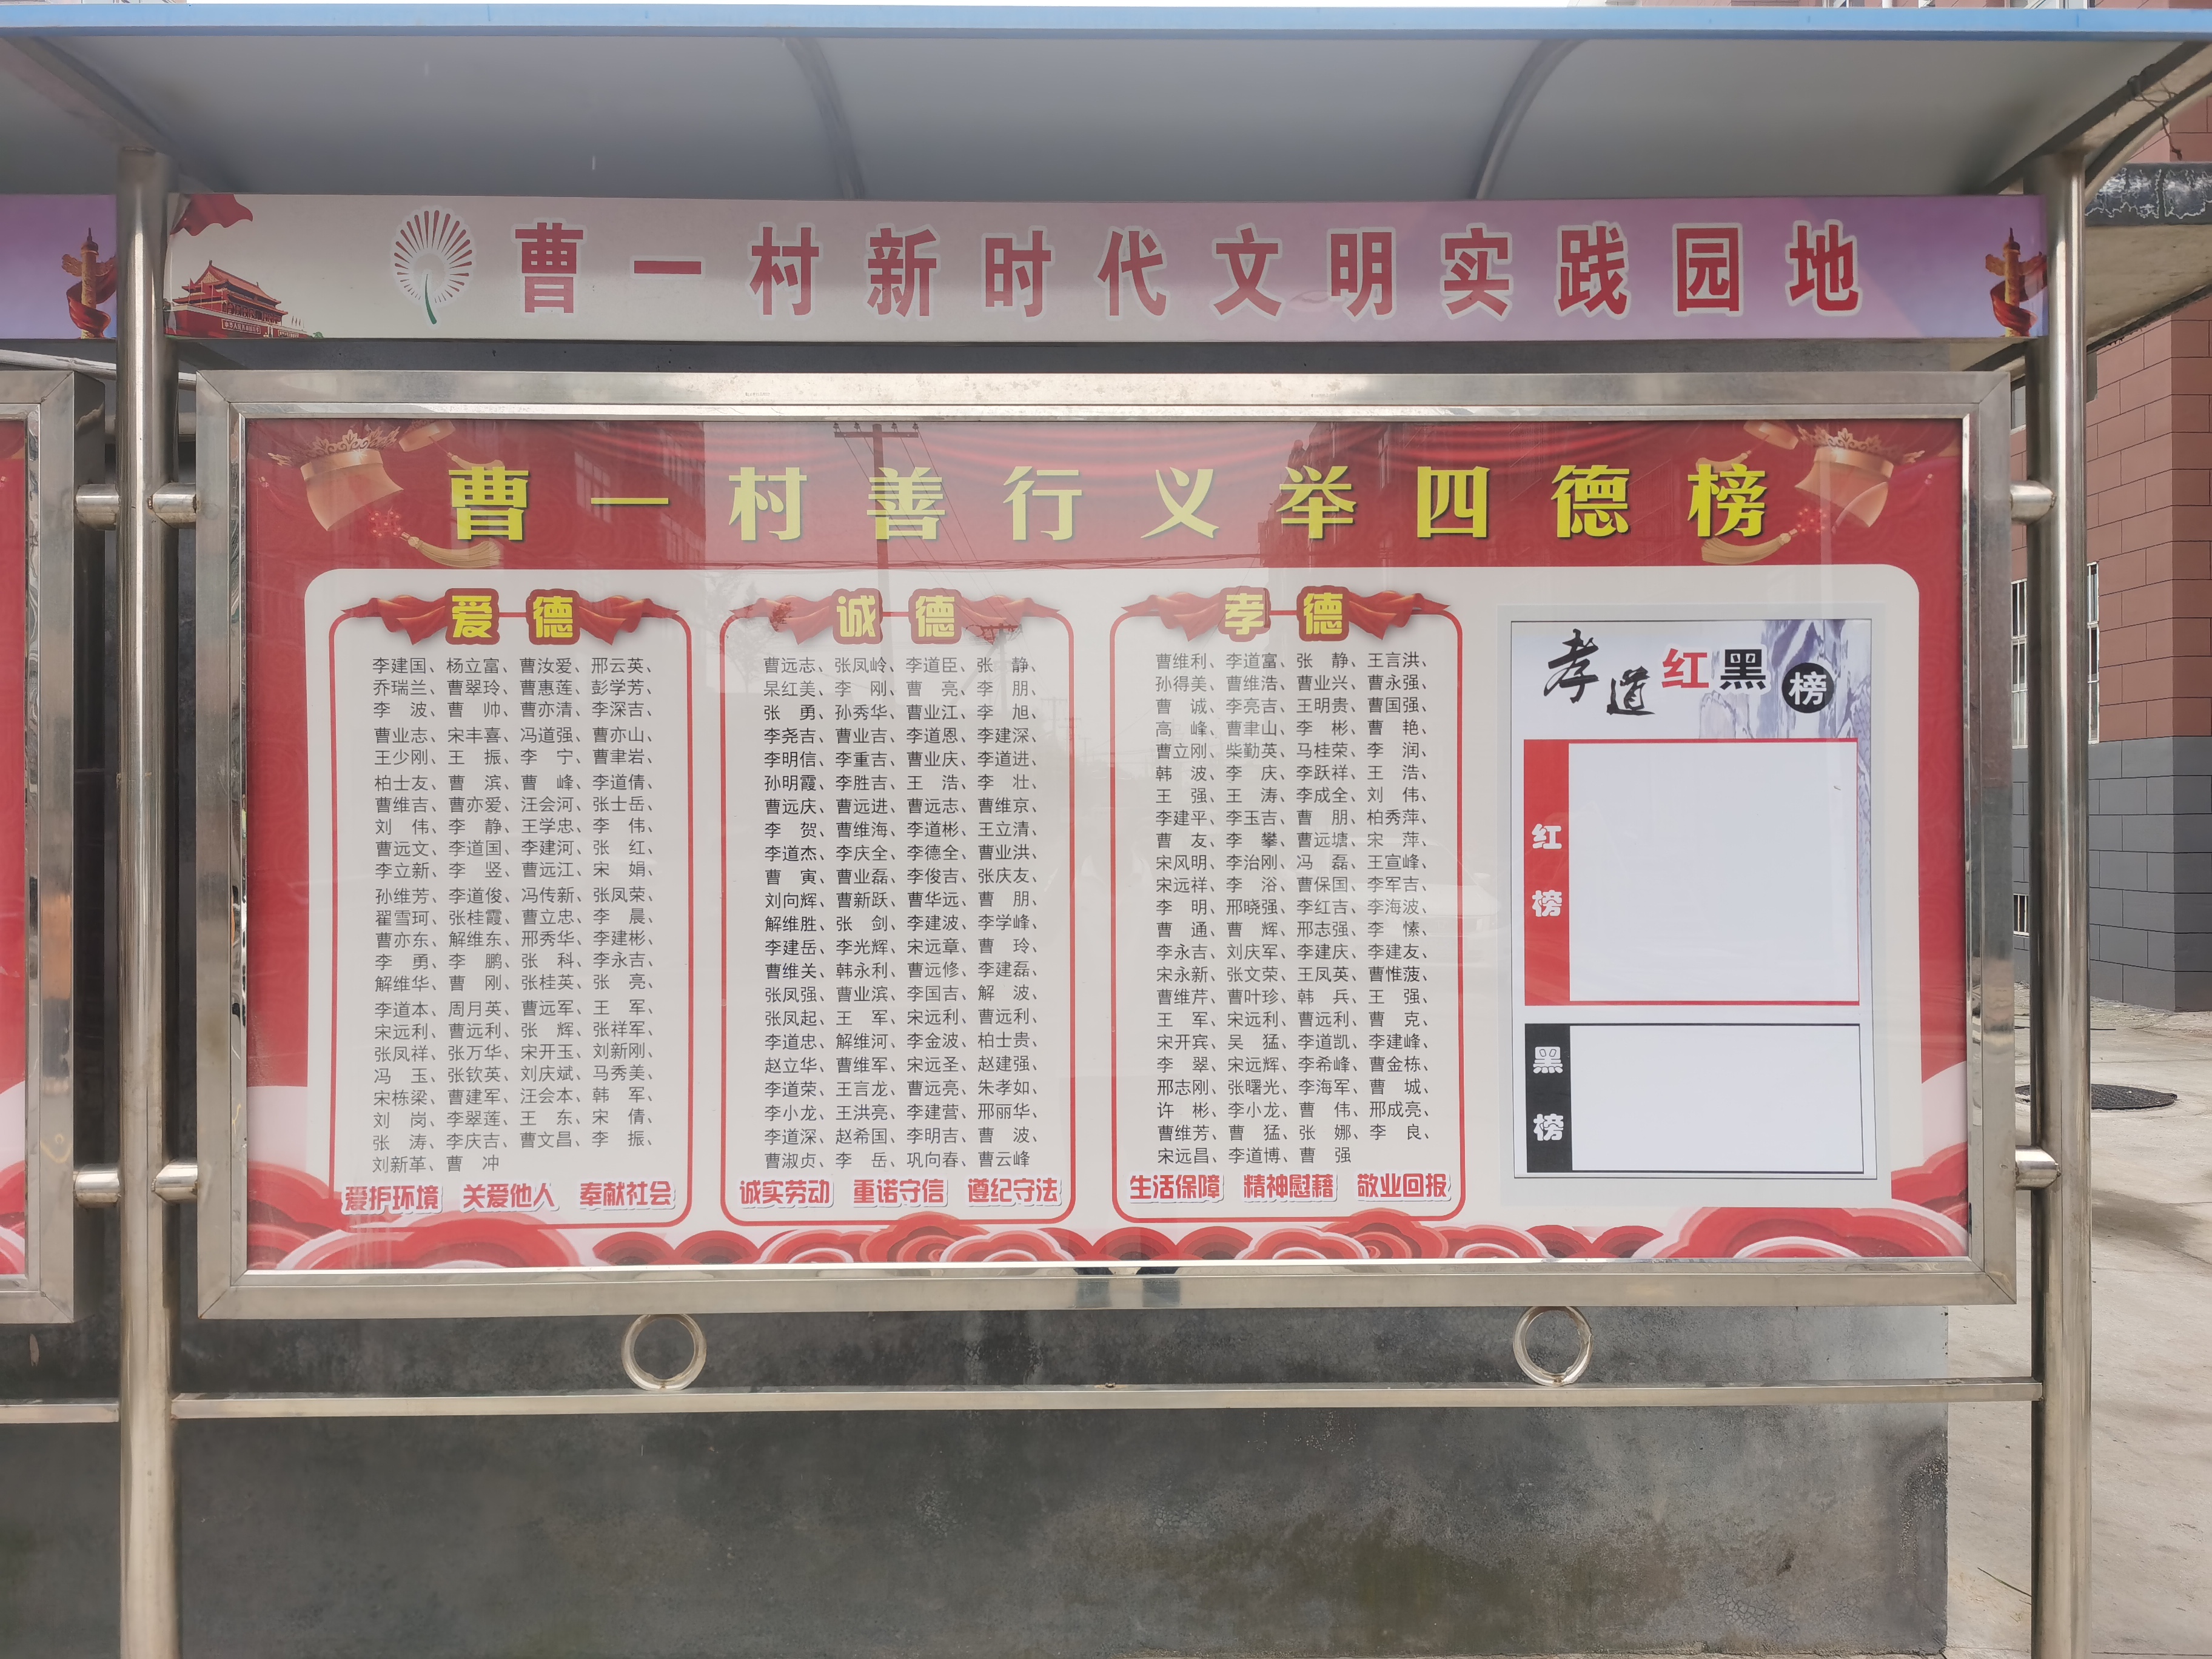 曹一村新时代文明实践园地
曹一村善行义举四德榜
爱德
李建国、杨立富、曹汝爱、邢云英、
乔瑞兰、曹翠玲、曹惠莲、彭学芳、
李　波、曹　帅、曹亦清、李深吉、
曹业志、宋丰喜、冯道强、曹亦山、
王少刚、王　振、李　宁、曹聿岩、
柏士友、曹　滨、曹　峰、李道倩、
曹维吉、曹亦爱、汪会河、张士岳、
刘　伟、李　静、王学忠、李　伟、
曹远文、李道国、李建河、张　红、
李立新、李　竖、曹远江、宋　娟、
孙维芳、李道俊、冯传新、张凤荣、
翟雪珂、张桂霞、曹立忠、李　晨、
曹亦东、解维东、邢秀华、李建彬、
李　勇、李　鹏、张　科、李永吉、
解维华、曹　刚、张桂英、张　亮、
李道本、周月英、曹远军、王　军、
宋远利、曹远利、张　辉、张祥军、
张凤祥、张万华、宋开玉、刘新刚、
冯　玉、张钦英、刘庆斌、马秀美、
宋栋梁、曹建军、汪会本、韩　军、
刘　岗、李翠莲、王　东、宋　倩、
张　涛、李庆吉、曹文昌、李　振、
刘新革、曹　冲
爱护环境　关爱他人　奉献社会
诚德
曹远志、张凤岭、李道臣、张　静、
杲红美、李　刚、曹　亮、李　朋、
张　勇、孙秀华、曹业江、李　旭、
李尧吉、曹业吉、李道恩、李建深、
李明信、李重吉、曹业庆、李道进、
孙明霞、李胜吉、王　浩、李　壮、
曹远庆、曹远进、曹远志、曹维京、
李　贺、曹维海、李道彬、王立清、
李道杰、李庆全、李德全、曹业洪、
曹　寅、曹业磊、李俊吉、张庆友、
刘向辉、曹新跃、曹华远、曹　朋、
解维胜、张　剑、李建波、李学峰、
李建岳、李光辉、宋远章、曹　玲、
曹维关、韩永利、曹远修、李建磊、
张凤强、曹业滨、李国吉、解　波、
张凤起、王　军、宋远利、曹远利、
李道忠、解维河、李金波、柏士贵、
赵立华、曹维军、宋远圣、赵建强、
李道荣、王言龙、曹远亮、朱孝如、
李小龙、王洪亮、李建营、邢丽华、
李道深、赵希国、李明吉、曹　波、
曹淑贞、李　岳、巩向春、曹云峰
诚实劳动　重诺守信　遵纪守法
孝德
曹维利、李道富、张　静、王言洪、
孙得美、曹维浩、曹业兴、曹永强、
曹　诚、李亮吉、王明贵、曹国强、
高　峰、曹聿山、李　彬、曹　艳、
曹立刚、柴勤英、马桂荣、李　润、
韩　波、李　庆、李跃祥、王　浩、
王　强、王　涛、李成全、刘　伟、
李建平、李玉吉、曹　朋、柏秀萍、
曹　友、李　攀、曹远塘、宋　萍、
宋风明、李治刚、冯　磊、王宣峰、
宋远祥、李　浴、曹保国、李军吉、
李　明、邢晓强、李红吉、李海波、
曹　通、曹　辉、邢志强、李　愫、
李永吉、刘庆军、李建庆、李建友、
宋永新、张文荣、王凤英、曹惟菠、
曹维芹、曹叶珍、韩　兵、王　强、
王　军、宋远利、曹远利、曹　克、
宋开宾、吴　猛、李道凯、李建峰、
李　翠、宋远辉、李希峰、曹金栋、
邢志刚、张曙光、李海军、曹　城、
许　彬、李小龙、曹　伟、邢成亮、
曹维芳、曹　猛、张　娜、李　良、
宋远昌、李道博、曹　强
生活保障　精神慰藉　敬业回报
孝道红黑榜
红榜
黑榜